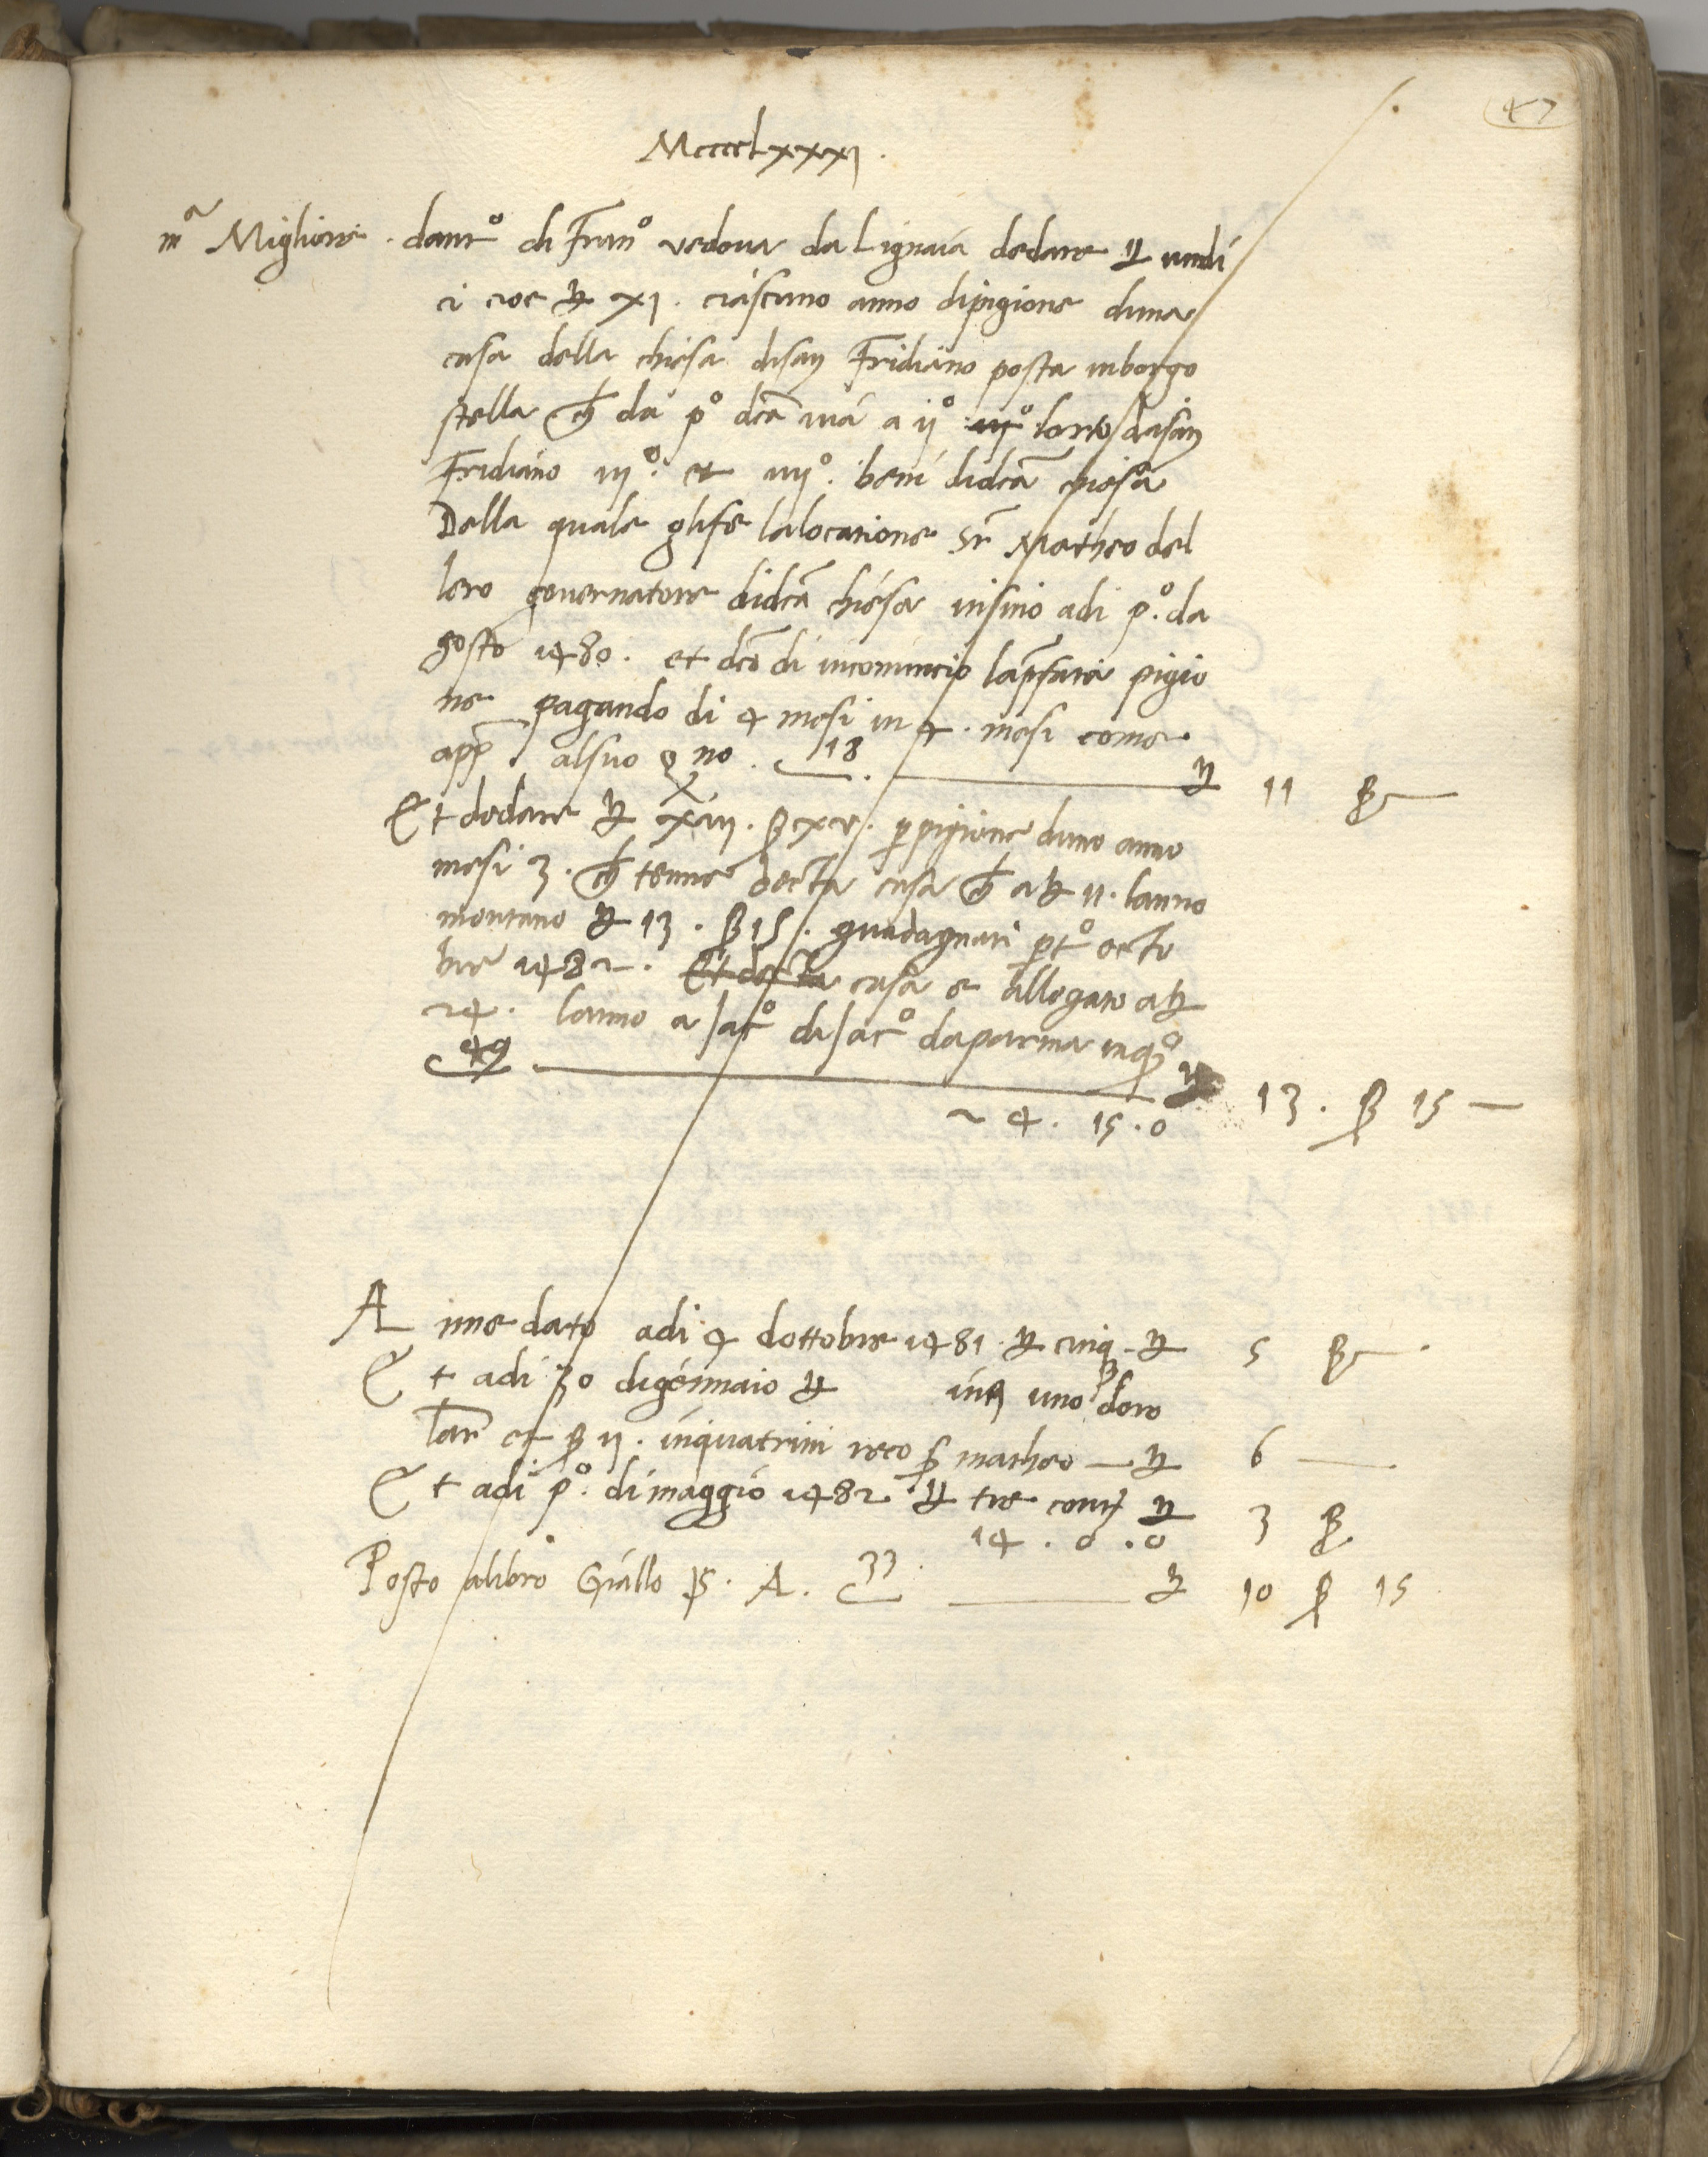 47
MccccLxxxj.
mᵃ Migliore. dantº di Franº vedova da Lignaia dedare ℔ undi
ci cioe ℔ xj. ciascuno anno dipigione duna
casa della chiesa disan Fridiano posta inborgo
stella ch̄ da pº dcā via a ijº iijº lorto disan
Fridiano iijº. et iiijº. beni didcā chiesa
Della quale glife lalocatione Sr̄ Matheo del
lero governatore didcā chiesa insino adi pº. da
gosto 1480. et dcō di incomincio lap̄fata pigio
ne pagando di 4 mesi in 4. mesi come
app̄ alsuo qno. 18. ℔ 11 ß —
Et dedare ℔ xiij. ß xv. p pigione duno anno
mesi 3. ch̄ tenne decta casa ch̄ a ℔ 11. lanno
montano ℔ 13. ß 15. guadagnati ptº octo
bre 1482. Et decta casa e allogata a ℔
24. lanno a Jacº di Jacº daparma inqº
49 ℔ 13. ß 15 —
24. 15. 0
A nne dato adi 4 dottobre 1481. ℔ cinq. ℔ 5 ß —
Et adi 30 digennaio ℔ in uno ß doro
lar̄ et ß ij. inquatrini reco S matheo — ℔ 6 —
Et adi pº. dimaggio 1482 ℔ tre contj ℔ 3 ß
14. 0. 0
Posto alibro Giallo ps. A. 33. ℔ 10 ß 15